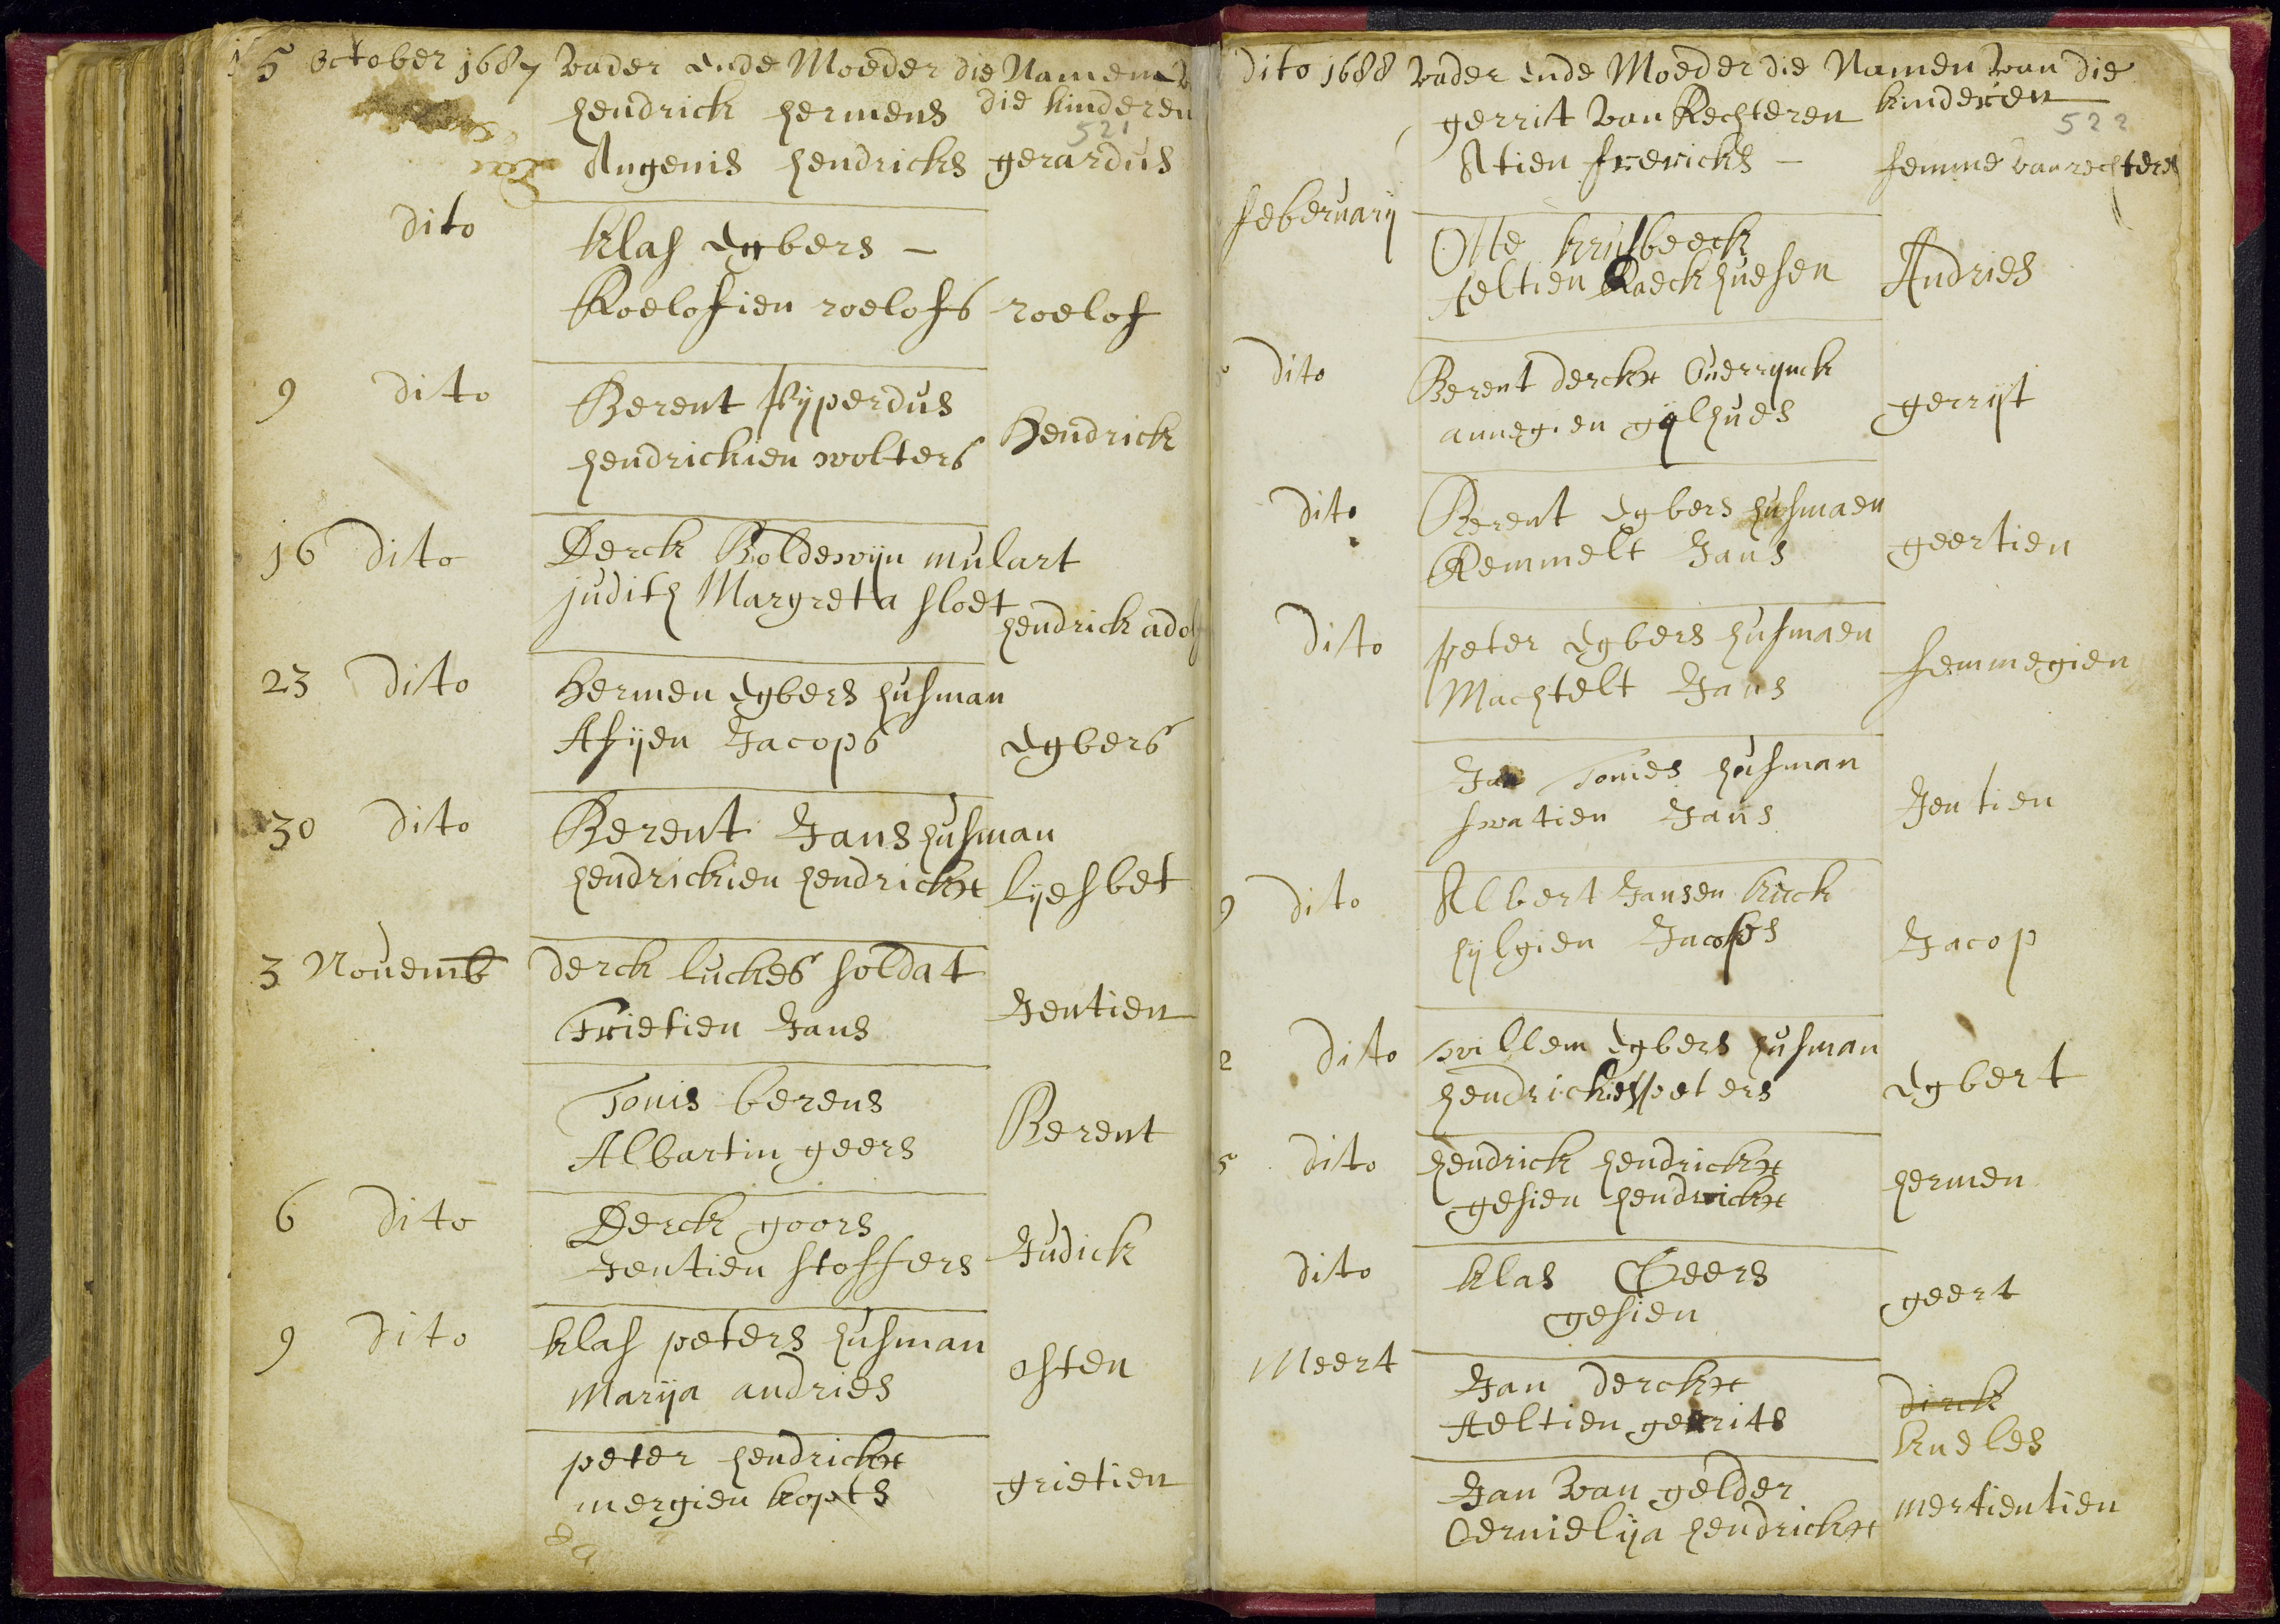 5 October 1687 vader ende Moeder die Namen
hendrick hermens die kinderen
521
Angenis hendricks gerardus
dito klas Egbers –
Roelofien roelofs roelof
9 dito Berent Pijperdus
hendrickien wolters Hendrick
16 dito Derck Boldewijn mulart
judith Margreta sloet
hendrick adolf
23 dito Hermen Egbers husman
Afijen Jacops Egbers
30 dito Berent Jans husman
hendrickien hendrickx lijesbet
3 Novemb derck luckes soldat
Frietien Jans Jentien
Tonis berens
Albartin geers Berent
6 dito Derck goors
Jentien stoffers Judick
9 dito klas peters husman
Marija andries osten
peter hendrickx
mergien kopts grietien
dito 1688 vader ende Moeder die Namen van die
gerrit van Rechteren kinderen
522
Atien frericks – femme van rechteren
febervarij
Otte krusbeeck
Aeltien Raeckhuesen Andries
dito Berent derckx Overrijnck
annegien gijlhues gerrijt
dito Berent Egbers husmaen
Remmelt Jans geertien
dito peter Egbers husmaen
Machtelt Jans femmegien
Jan Tonies husman
swatien Jans Jentien
9 dito Albert Jansen kuck
hijlgien Jacobs Jacop
2 dito willem Egbers husman
hendrickien peters Egbert
5 dito hendrick hendrickx
gesien hendrickx hermen
dito klas Geers
gesien geert
Meert Jan derckx
Aeltien gerrits dirck
kneles
Jan van gelder
Cernielija hendrickx mertientien